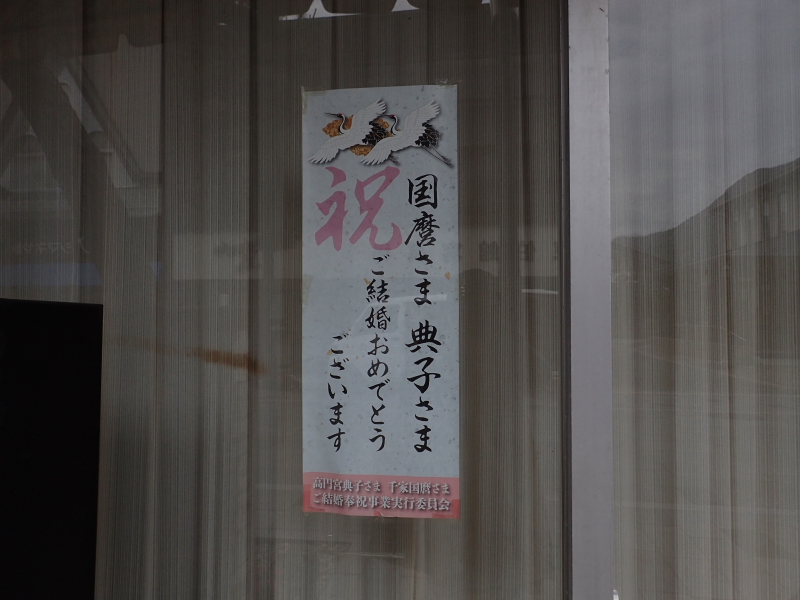 祝
国麿さま 典子さま
ご結婚おめでとう
ございます
高円宮典子さま 千家国麿さま
ご結婚奉祝事業実行委員会